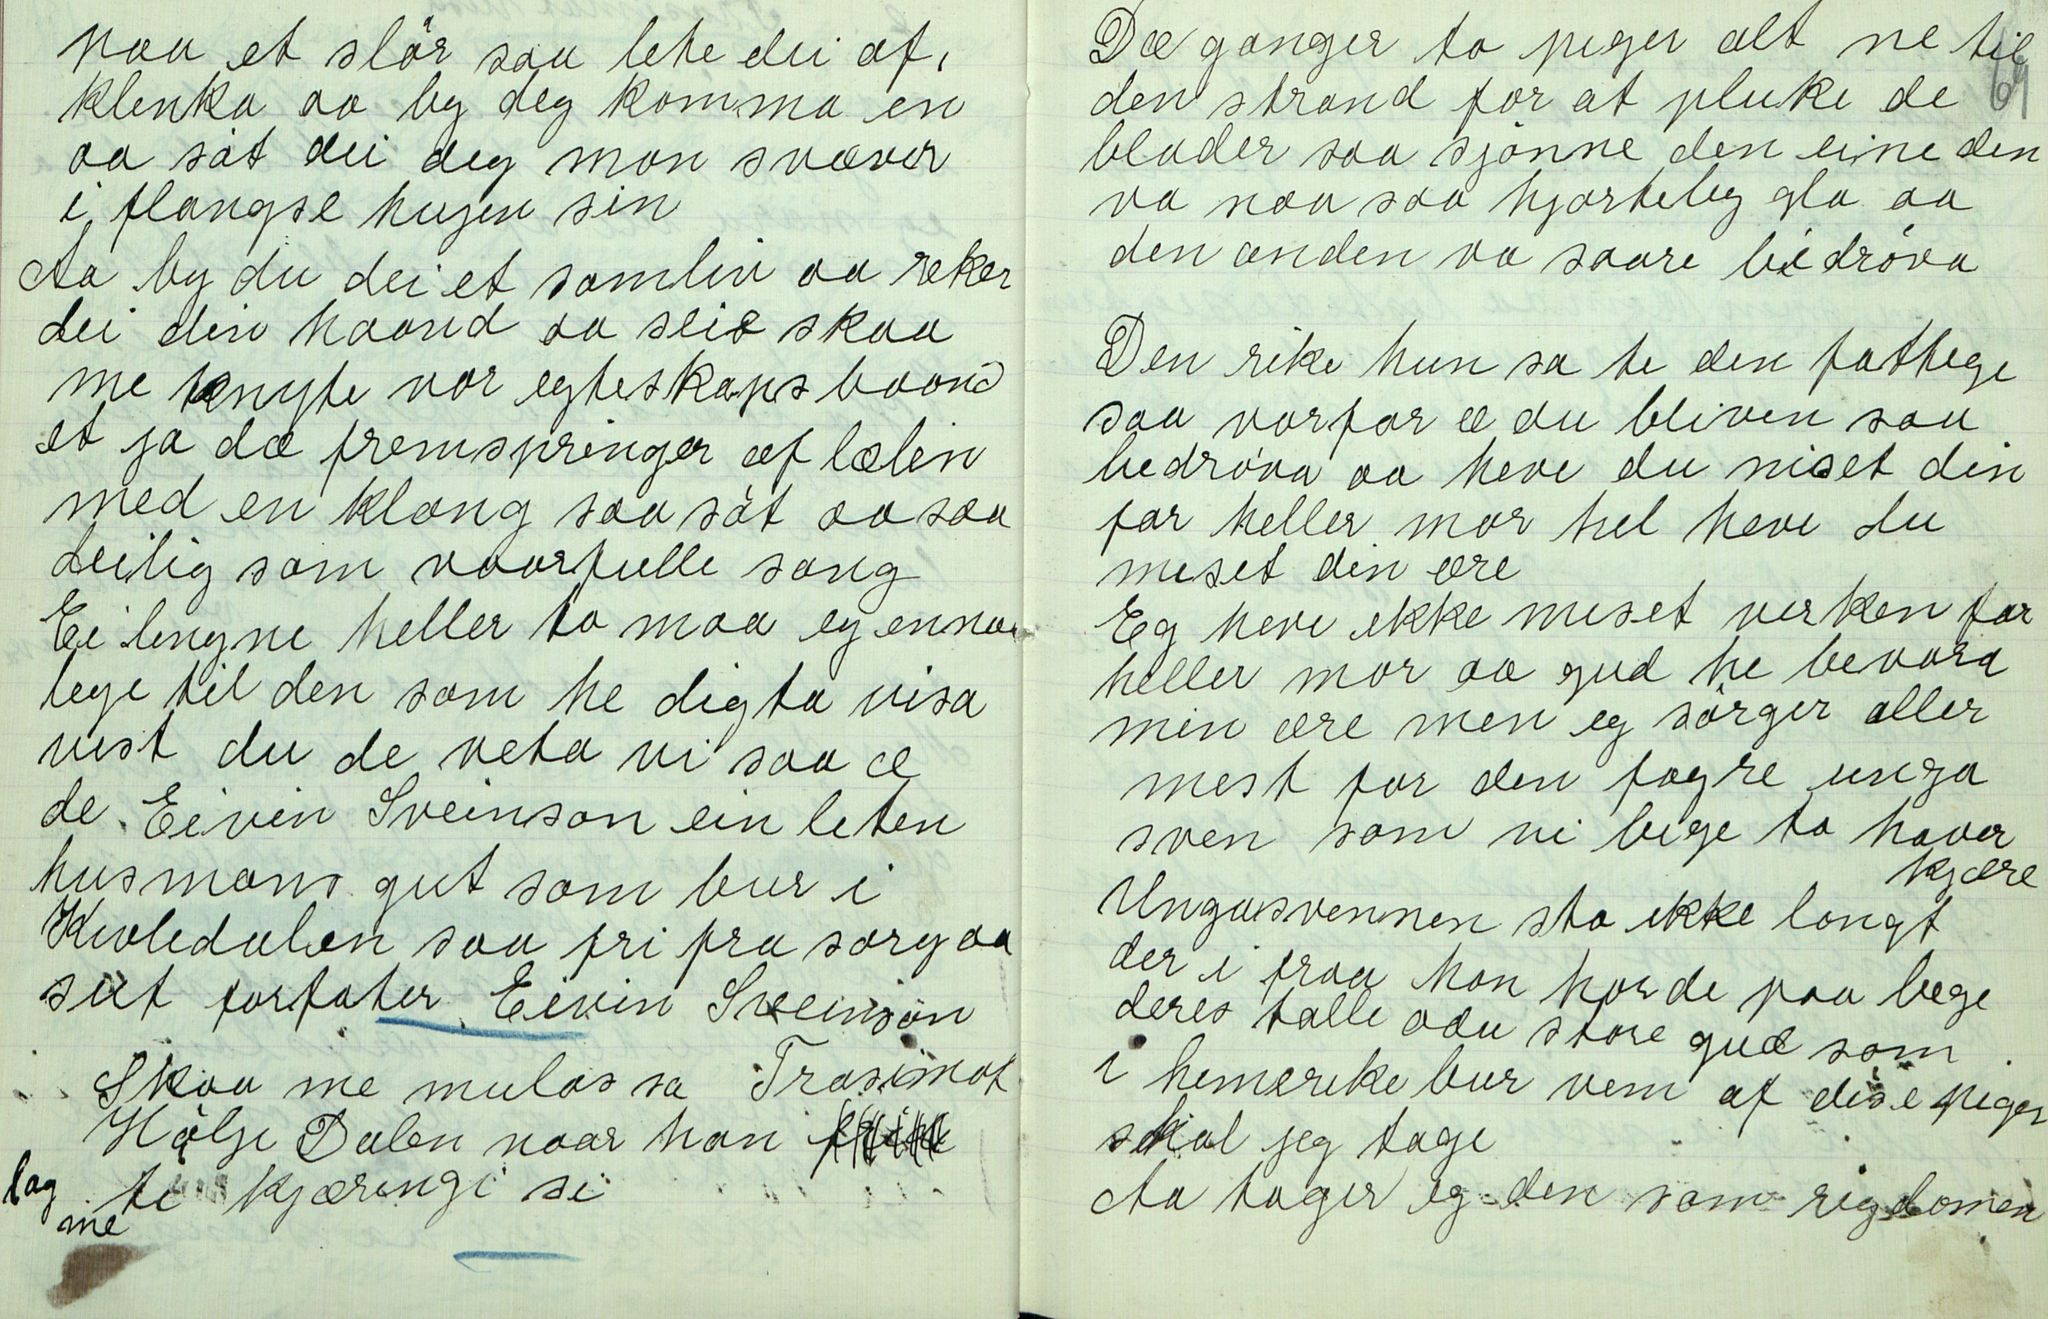 naa et slør saa lete dei af,
klenka aa by deg komma en
aa søt dei deg mon svæver
i flangse hugen sin
Aa by du dei et samliv aa ræker
dei din haand aa sleis skaa
me knyte vor egteskaps baand
et ja dæ fremspringer af læben
med en klang saa søt aa saa
deilig som vaarfulle sang
Ei lengne heller to maa eg ennaa
lege til den som he digta visa
vist du de veta vi saa æ
de Eivin Sveinson ein leten
husmans gut som bur i
Kivledalen saa fri fra sorg aa
sut forfater Eivin Sveinson
Skaa me mulas sa Trasimot
Hølje Dalen naar han
lag me te kjæringi si
69
Dæ ganger to piger alt ne til
den strand for at pluke de
blader saa sjønne den eine den
va naa saa hjarteleg gla aa
den anden va saare bedrøva
Den rike hun sa te den fattege
saa varfor æ du bliven saa
bedrøva aa heve du miset din
far heller mor hel heve du
meset din ære
Eg heve ikke meset verken far
heller mor aa gud he bevara
min ære men eg sørger aller
mest for den fagre unga
sven som vi bege to haver
kjære
Ungasvennen sto ikke langt
der i fraa han horde paa bege
deres talle odu store gud som
i hemerike bur vem af dise piger
skal jeg tage
Aa tager eg den som rigdomen